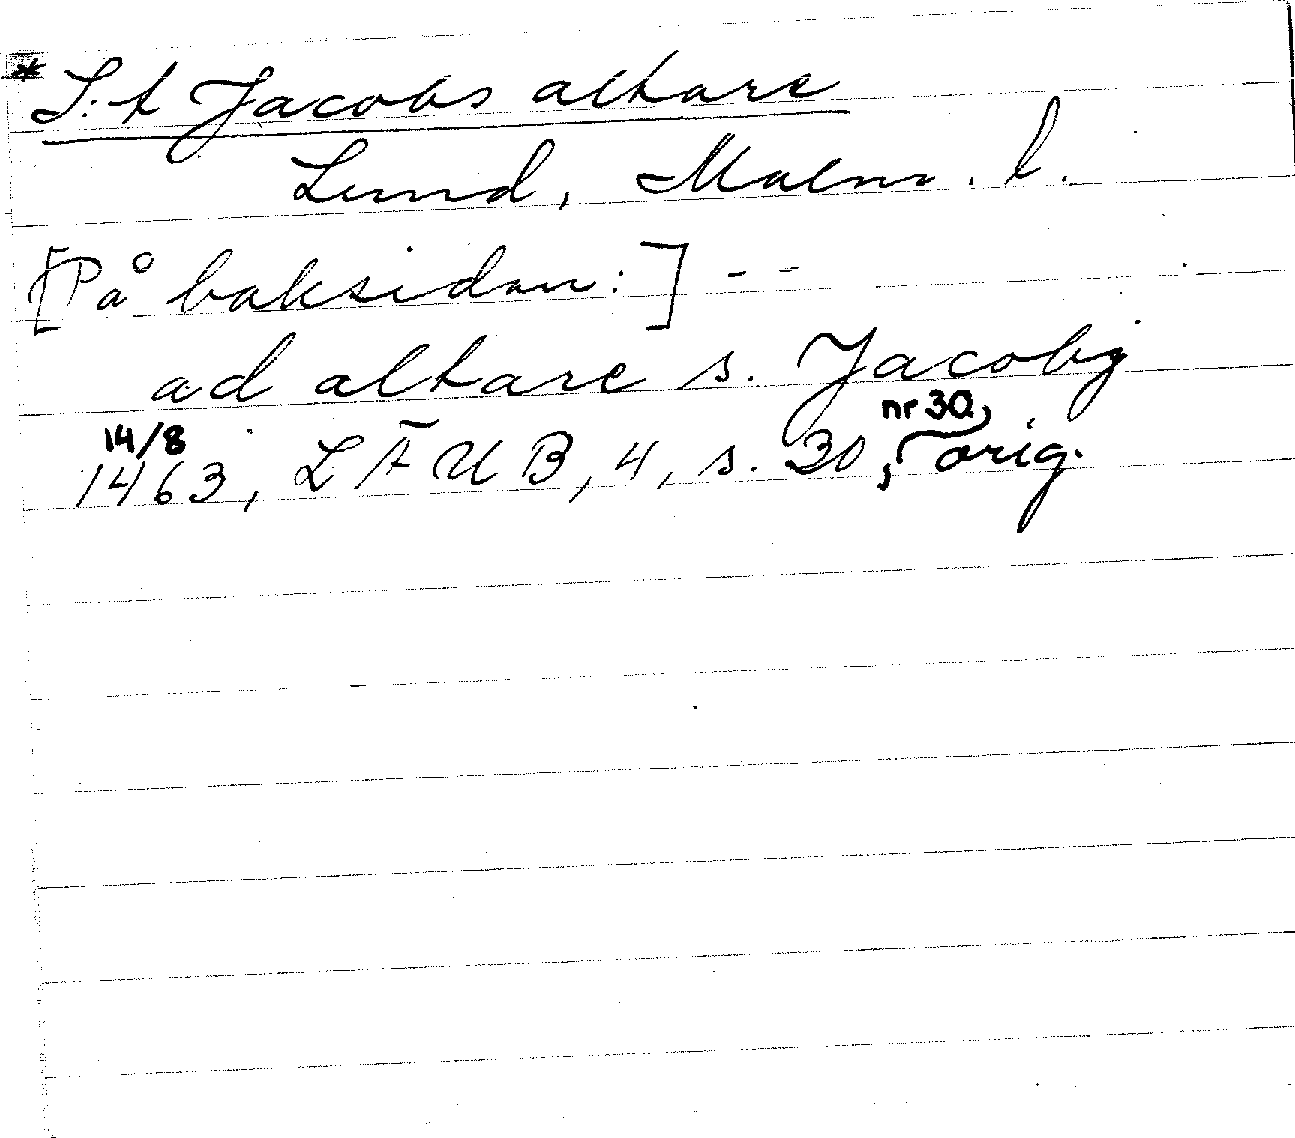 * S:t Jacobs altare
Lund, Malm. l.
[På baksidan:] - -
ad altare s. Jacobj
14/8 1463, LÄUB, 4, s. 30, nr 30, orig.